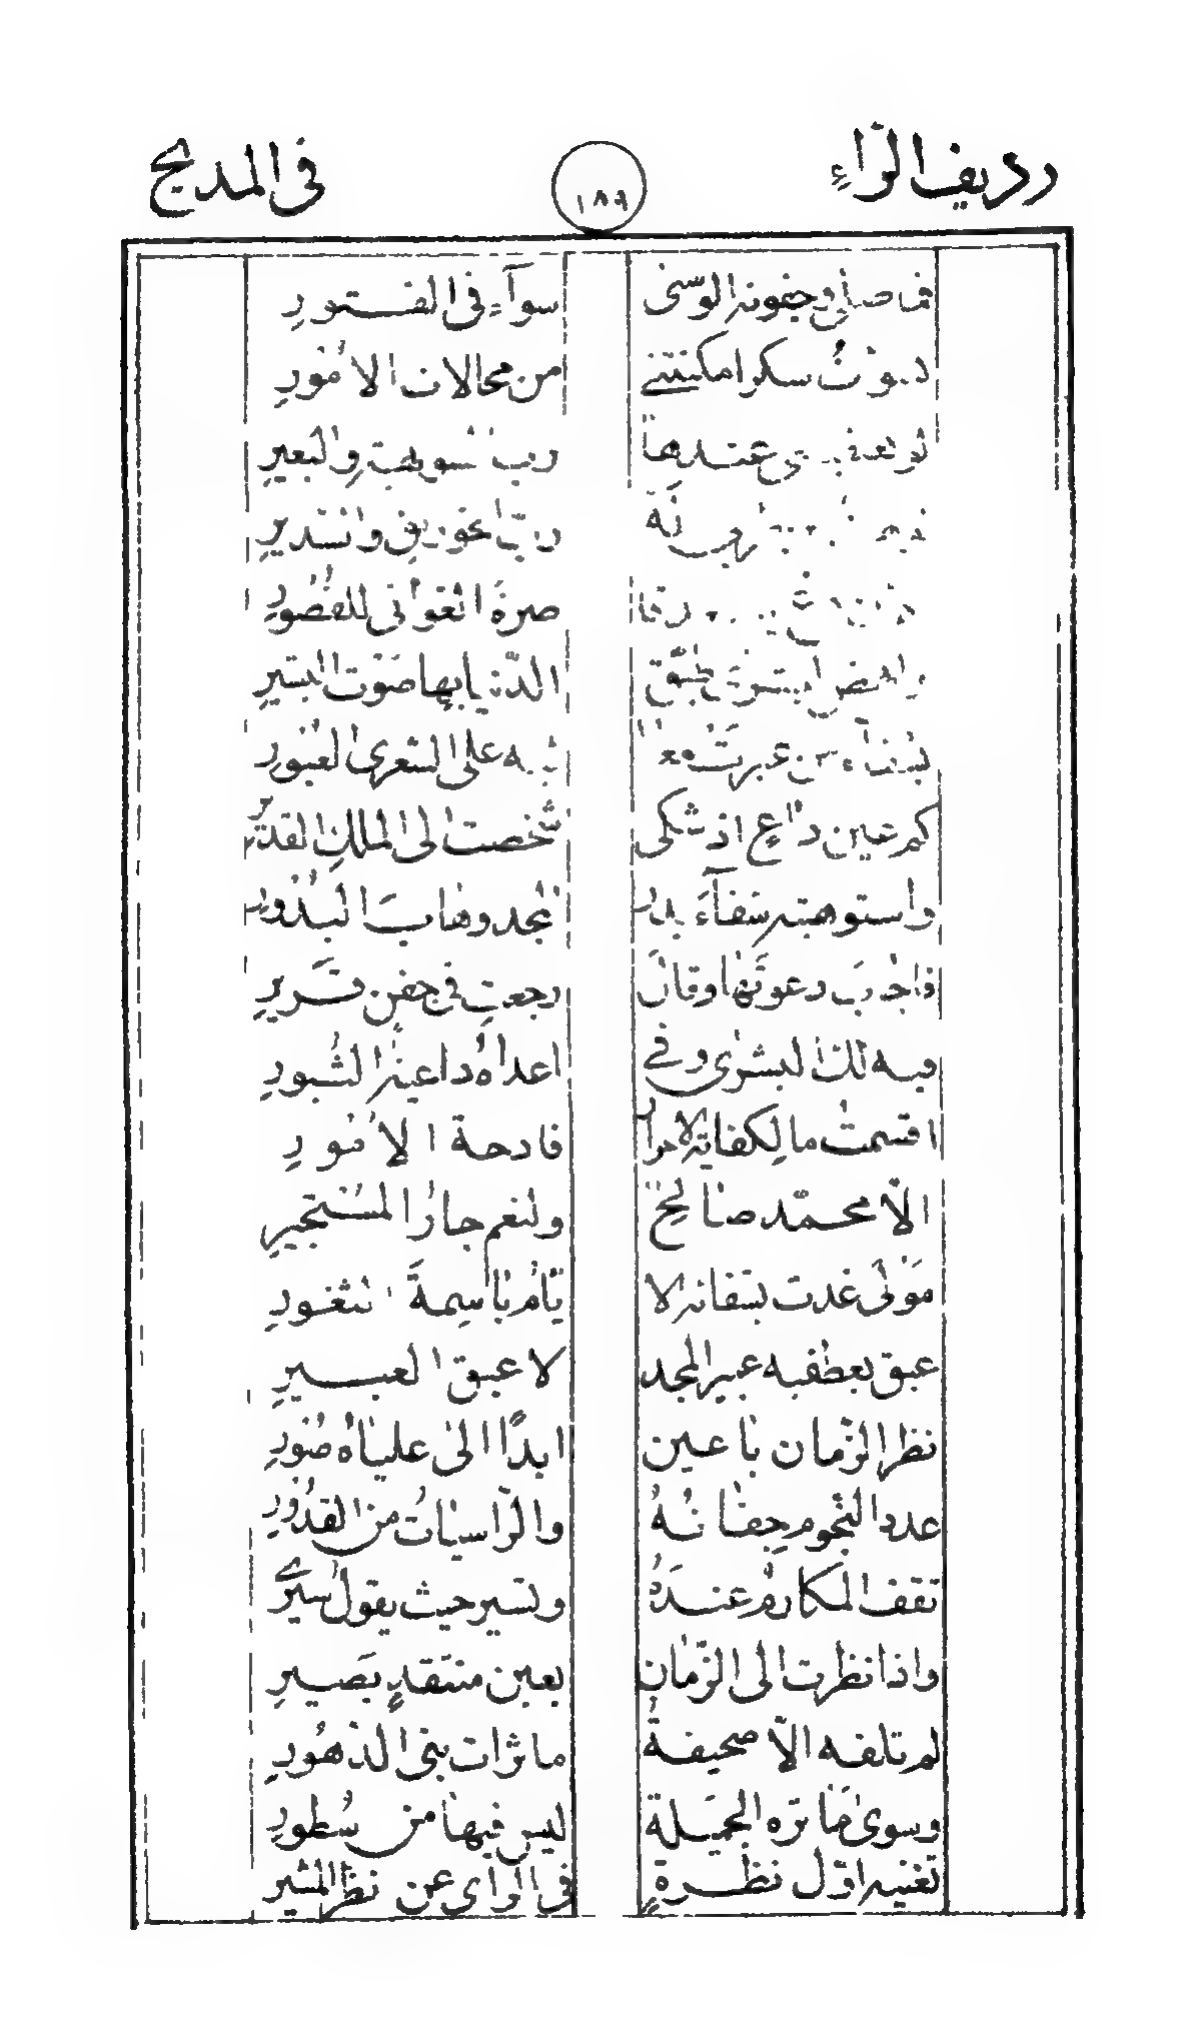 رديف الرّاءِ ١٨٦ في المديح
جفونه الوسنى سوآء في الفتورِ
سكرا مكنتني من محالات الامورِ
عندها ربّ الشويهة والبعيرِ
ربّ الخورنق والسّديرِ
صرة الغواني للقصورِ
طبّق الدّنيا بها صوت البشيرِ
عبرت معا على الشعرى العبورِ
كم عين داعٍ اذ شكى شخصت الى الملك القديرِ
واستوهبته شفآءَ المجد وهابَ البدورِ
دعوتها وقال رجعتِ في جفن قريرِ
وبه لك البشرى وفي اعداه داعية الثّبورِ
اقسمت ما لكفاية فادحة الامورِ
الّا محمّد صالح ولنعم جار المستجيرِ
مولى غدت بشفائه الا يّام باسمة الثغورِ
عبق بعطفيه عبير المجد لا عبق العبيرِ
نظر الزّمان باعين ابدًا الى علياه صورِ
عدد النّجوم جفانهُ والرّاسيات من القدورِ
تقف المكارم عندهُ وتسير حيث يقول سيري
واذا نظرت الى الزّمان بعين منتقدٍ بصيرِ
لم تلفه الّا صحيفةُ ماثرات بني الدّهورِ
وسوى مآثره الجميلة ليس فيها من سطورِ
تغنيه اوّل نظرةٍ في الرّاي عن نظر المشير